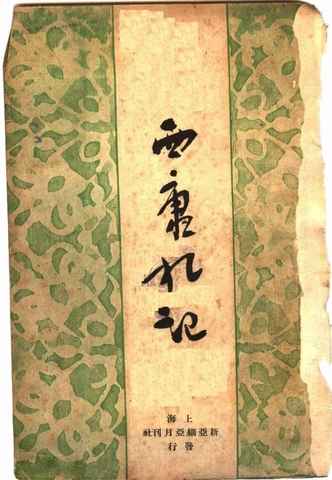 西康札记
上海
新亞細亞月刊社
發行